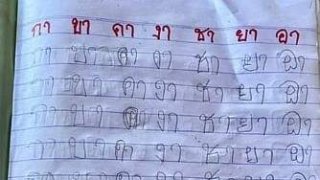 กา ขา คา งา ชา ยา อา
กา ขา คา งา ชา ยา อา
กา ขา คา งา ชา ยา อา
กา ขา คา งา ชา ยา อา
กา ขา คา งา ชา ยา อา